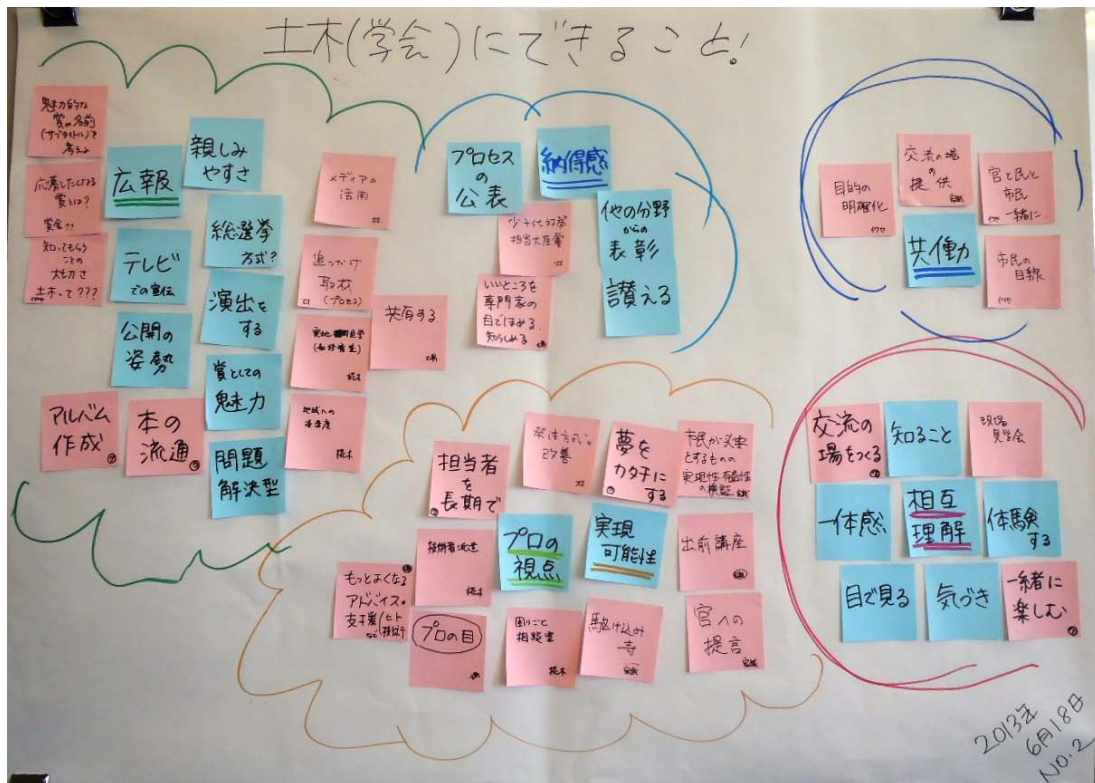 土木(学会)にできること!
魅力的な
賞の名前
(サブタイトル)を
考える
広報
親しみ
やすさ
応募したくなる
賞とは?
賞金??
知ってもらう
ことの
大切さ
土木って???
テレビ
での宣伝
総選挙
方式?
公開の
姿勢
演出を
する
賞としての
魅力
アルバム
作成
本の
流通
問題
解決型
メディアの
活用
追っかけ
取材
(プロセス)
共有する
地域への
プロセス
の
公表
納得感
担当大臣賞
他の分野
からの
表彰
讃える
いいところを
専門家の
目でほめる。
知らしめる
目的の
明確化
交流の場
の
提供
官と民と
市民
一緒に
共働力
市民の
目線
担当者
を
長期で
発注方式の
改善
夢を
カタチに
する
市民が必要
とするものの
実現性・可能性
の検証
技術者派遣
桜木
プロの
視点
実現
可能性
出前講座
もっとよくなる
アドバイス・
支援
プロの目
困りごと
相談室
桜木
駆け込み
寺
官への
提言
交流の
場をつくる
知ること
現場
見学会
一体感
相互
理解
体験
する
目で見る
気づき
一緒に
楽しむ
2013年
6月18日
NO.2